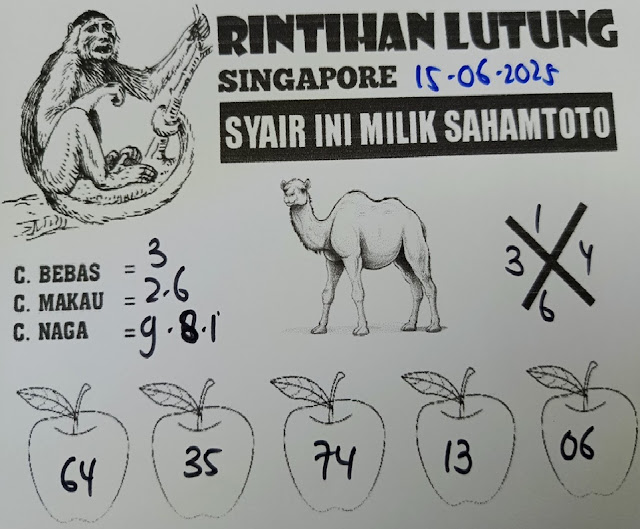 RINTIHAN LUTUNG
SINGAPORE 15-06-2025
SYAIR INI MILIK SAHAMTOTO
C. BEBAS = 3
C. MAKAU = 2.6
C. NAGA = 9.8.1
1
3 4
6
64 35 74 13 06